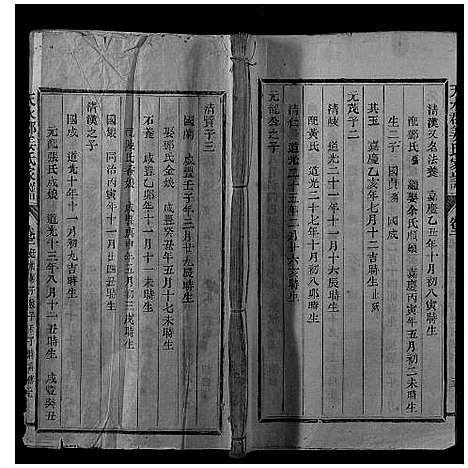 清漢又名法養 嘉慶乙丑年十月初八寅時生
配鄧氏 繼娶余氏順娘 嘉慶丙寅年五月初二未時生
生二子 國貞 國成
其玉 嘉慶乙亥年七月十二吉時生
元茂子二
清岐 道光十一年十一月十六辰時生
配黃氏 道光二十七年十月初八卯時生
清仁 道光二十五年二月二十六亥時生
元龍公之子
清賢子三
國蘭 咸豐壬子年三月廿九辰時生
娶鄧氏金娘 咸豐癸丑年五月十七未時生
石養 咸豐乙卯年十一月十一未時生
配陳氏春娘 咸豐庚申年二月初三戌時生
國娘 同治丙寅年十一月廿四丑時生
清漢之子
國成 道光十年十一月初九吉時生
元配張氏成娘 道光十三年八月十一丑時生 咸豐癸丑
天水郡姜氏家譜